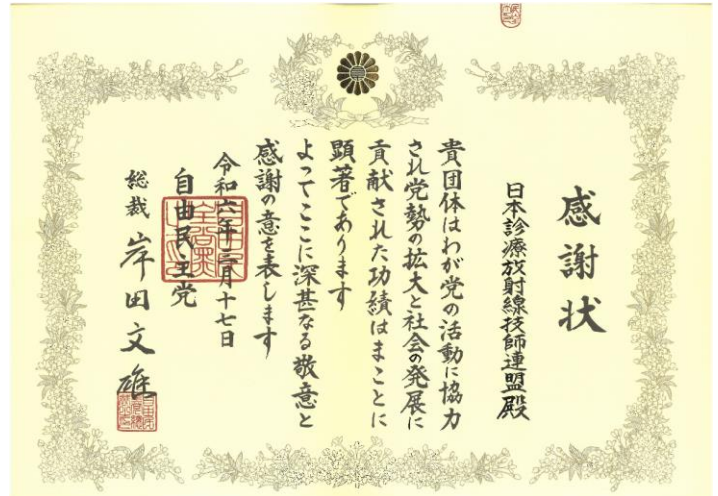 感謝状
日本診療放射線技師連盟殿
貴団体はわが党の活動に協力
され党勢の拡大と社会の発展に
貢献された功績はまことに
顕著であります
よってここに深甚なる敬意と
感謝の意を表します
令和六年三月十七日
自由民主党
総裁 岸田文雄